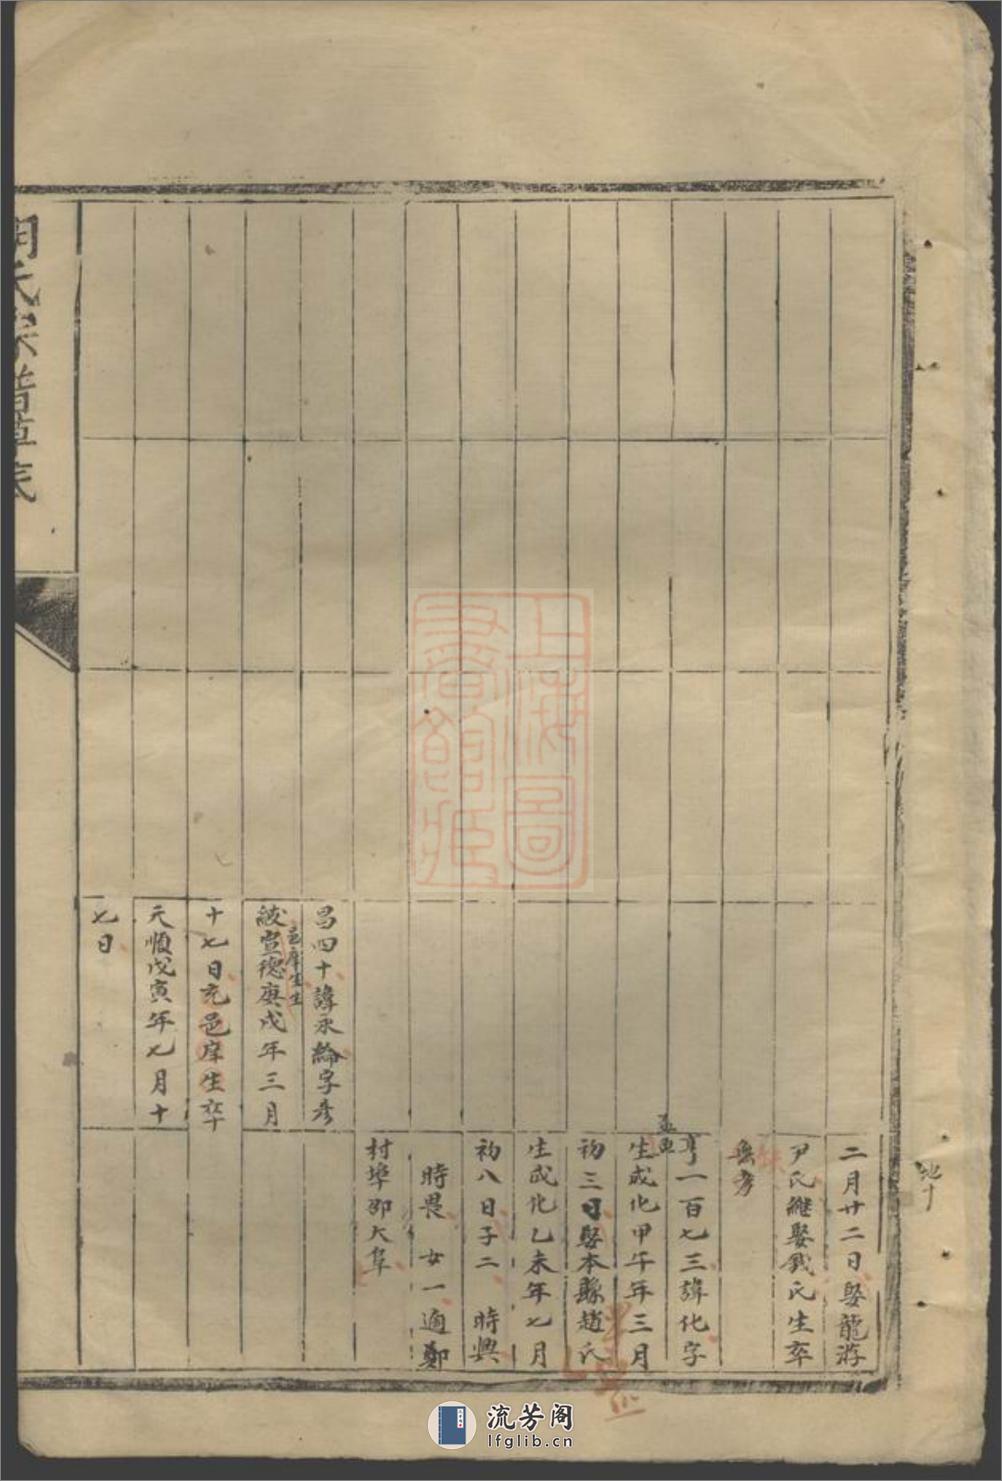 二月廿二日娶龍游
尹氏繼娶戴氏生卒
無考
亨一百七三諱化字
孟更
生成化甲午年三月
初三日娶本縣趙氏
生成化乙未年七月
初八日子二 時興
時畏 女一適鄭
村埠邵大阜
昌四十諱永綸字彥
紱宣德庚戌年三月
十七日充邑庠生卒
天順戊寅年七月十
七日
氏宗譜草表
上海圖書館藏
流芳阁
lfglib.cn